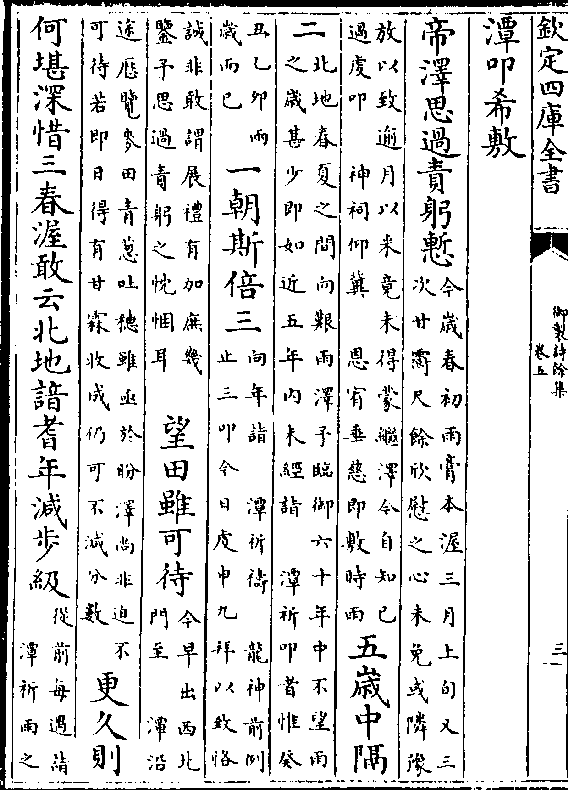 欽定四庫全書
御製詩餘集
卷五
三
潭叩希敷
帝澤思過責躬慙
今歲春初雨膏本渥三月上旬又三
次甘霔尺餘欣慰之心未免或隣豫
放以致逾月以来竟未得蒙繼澤今自知已
過虔叩 神祠仰冀 恩宥垂慈即敷時雨
五歲中隅
二
北地春夏之間向艱雨澤予臨御六十年中不望雨
之歲甚少即如近五年内未經詣 潭祈叩者惟癸
丑乙卯兩
歲而已
一朝斯倍三
向年詣 潭祈禱 龍神前例
止三叩今日虔申九拜以致恪
誠非敢謂展禮有加庶幾
鑒予思過責躬之忱悃耳
望田雖可待
今早出西北
門至 潭沿
途歷覽麥田青葱吐穗雖亟於盼澤尚非迫不
可待若即日得有甘霖收成仍可不減分數
更久則
何堪深惜三春渥敢云北地諳耆年減步級
從前每遇詣
潭祈雨之